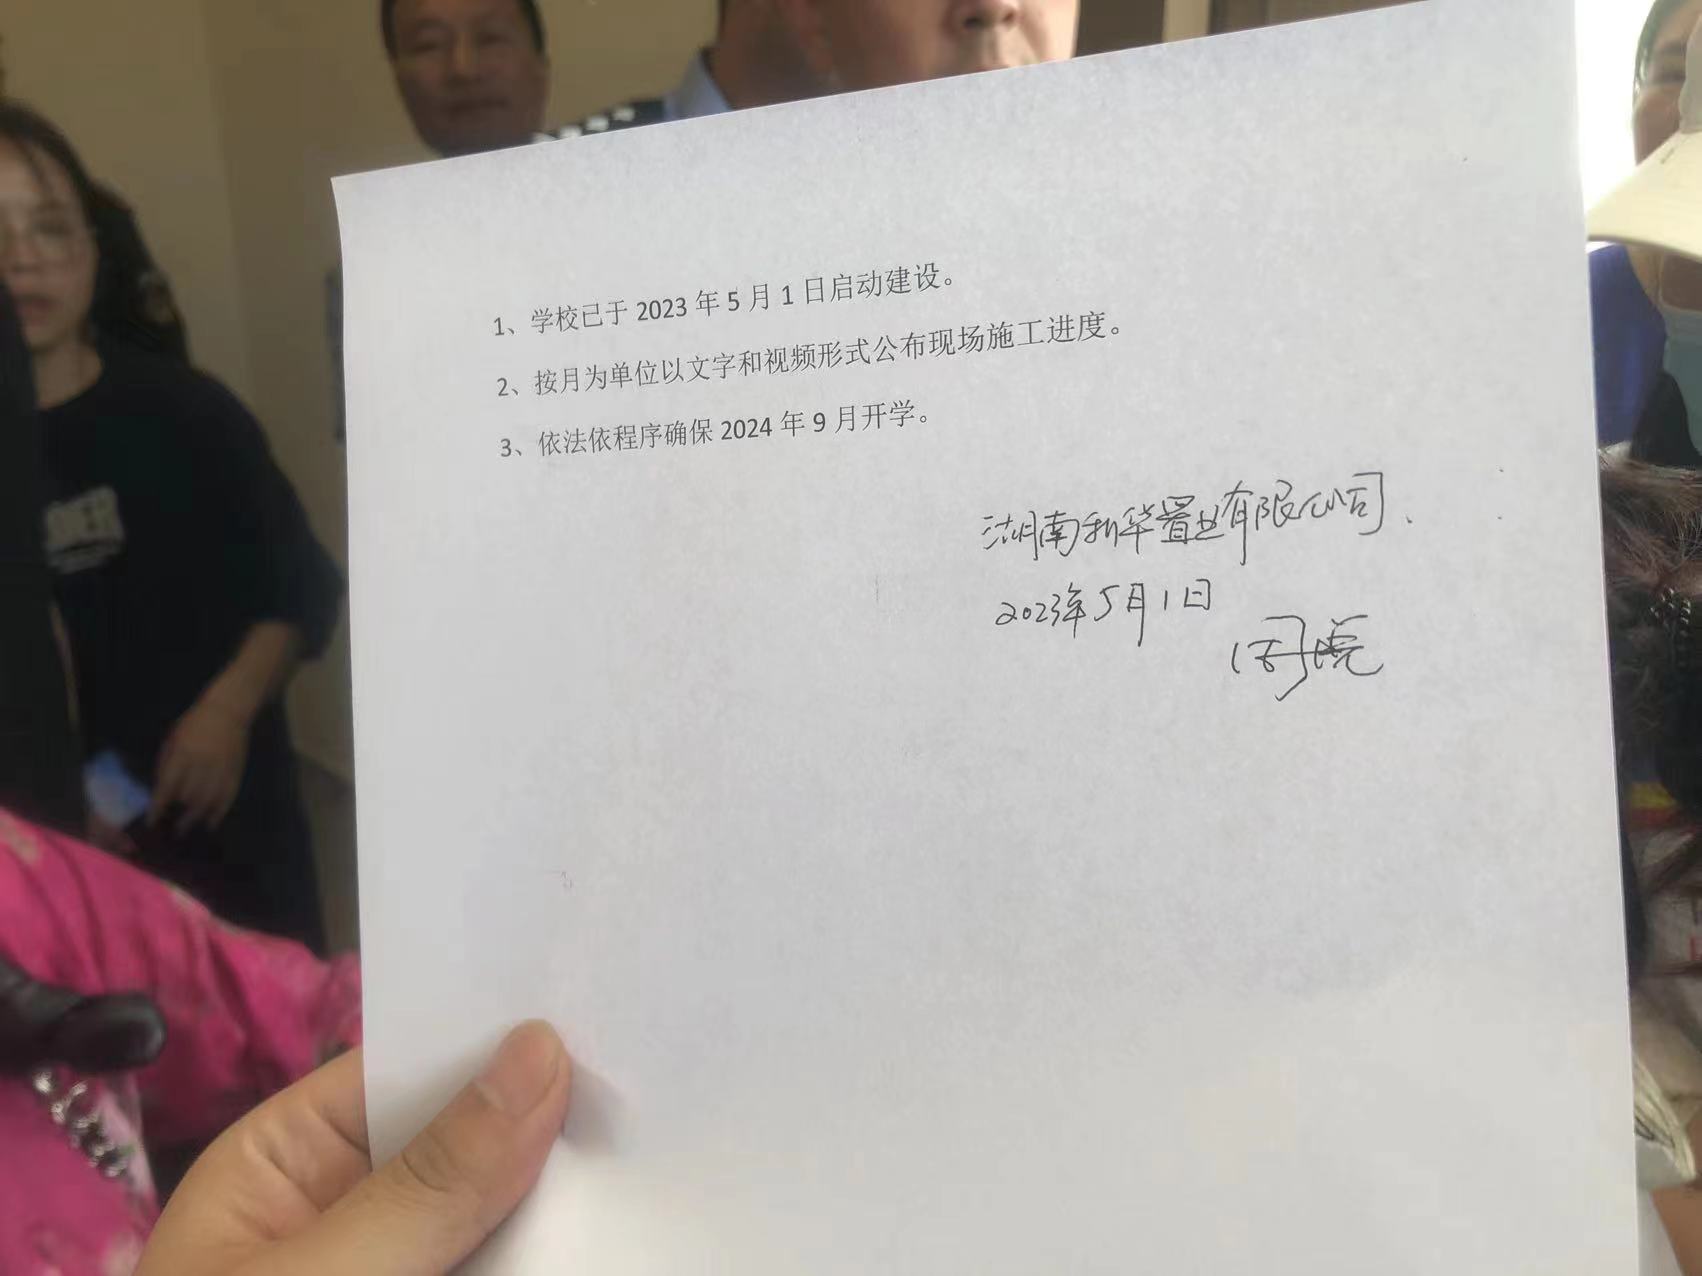 1、学校已于 2023 年 5 月 1 日启动建设。
2、按月为单位以文字和视频形式公布现场施工进度。
3、依法依程序确保 2024 年 9 月开学。
湖南新华置业有限公司
2023年5月1日